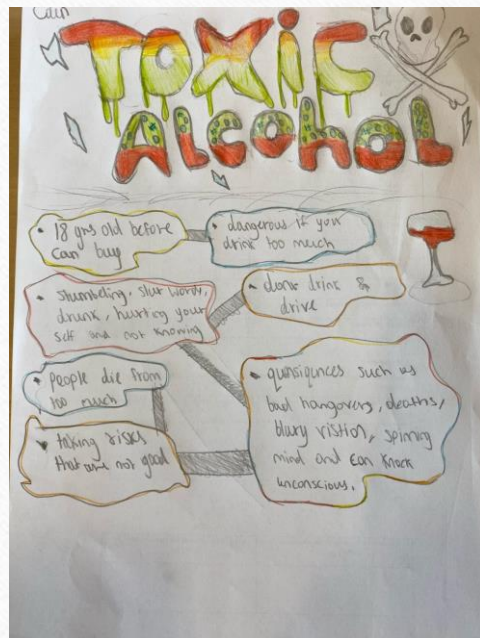 Cain
TOXIC
ALCOHOL
• 18 yrs old before
can buy
• dangerous if you
drink too much
• stumbeling, slur words,
drunk, hurting your
self and not knowing
• dont drink &
drive
• people die from
too much
• taking risks
that are not good
• quinsiqunces such as
bad hangovers, deaths,
blury vistion, spinning
mind and can knock
unconscious.